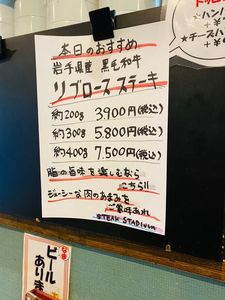 本日のおすすめ
岩手県産 黒毛和牛
リブロースステーキ
約200g 3900円(税込)
約300g 5.800円(税込)
約400g 7.500円(税込)
脂の旨味を楽しむなら
こちら!!
ジューシーな肉のあまみを
ご賞味あれ
STEAK STADIUM
トッピ
★ハンバ
+¥
★チーズハ
+¥
ビール
あります